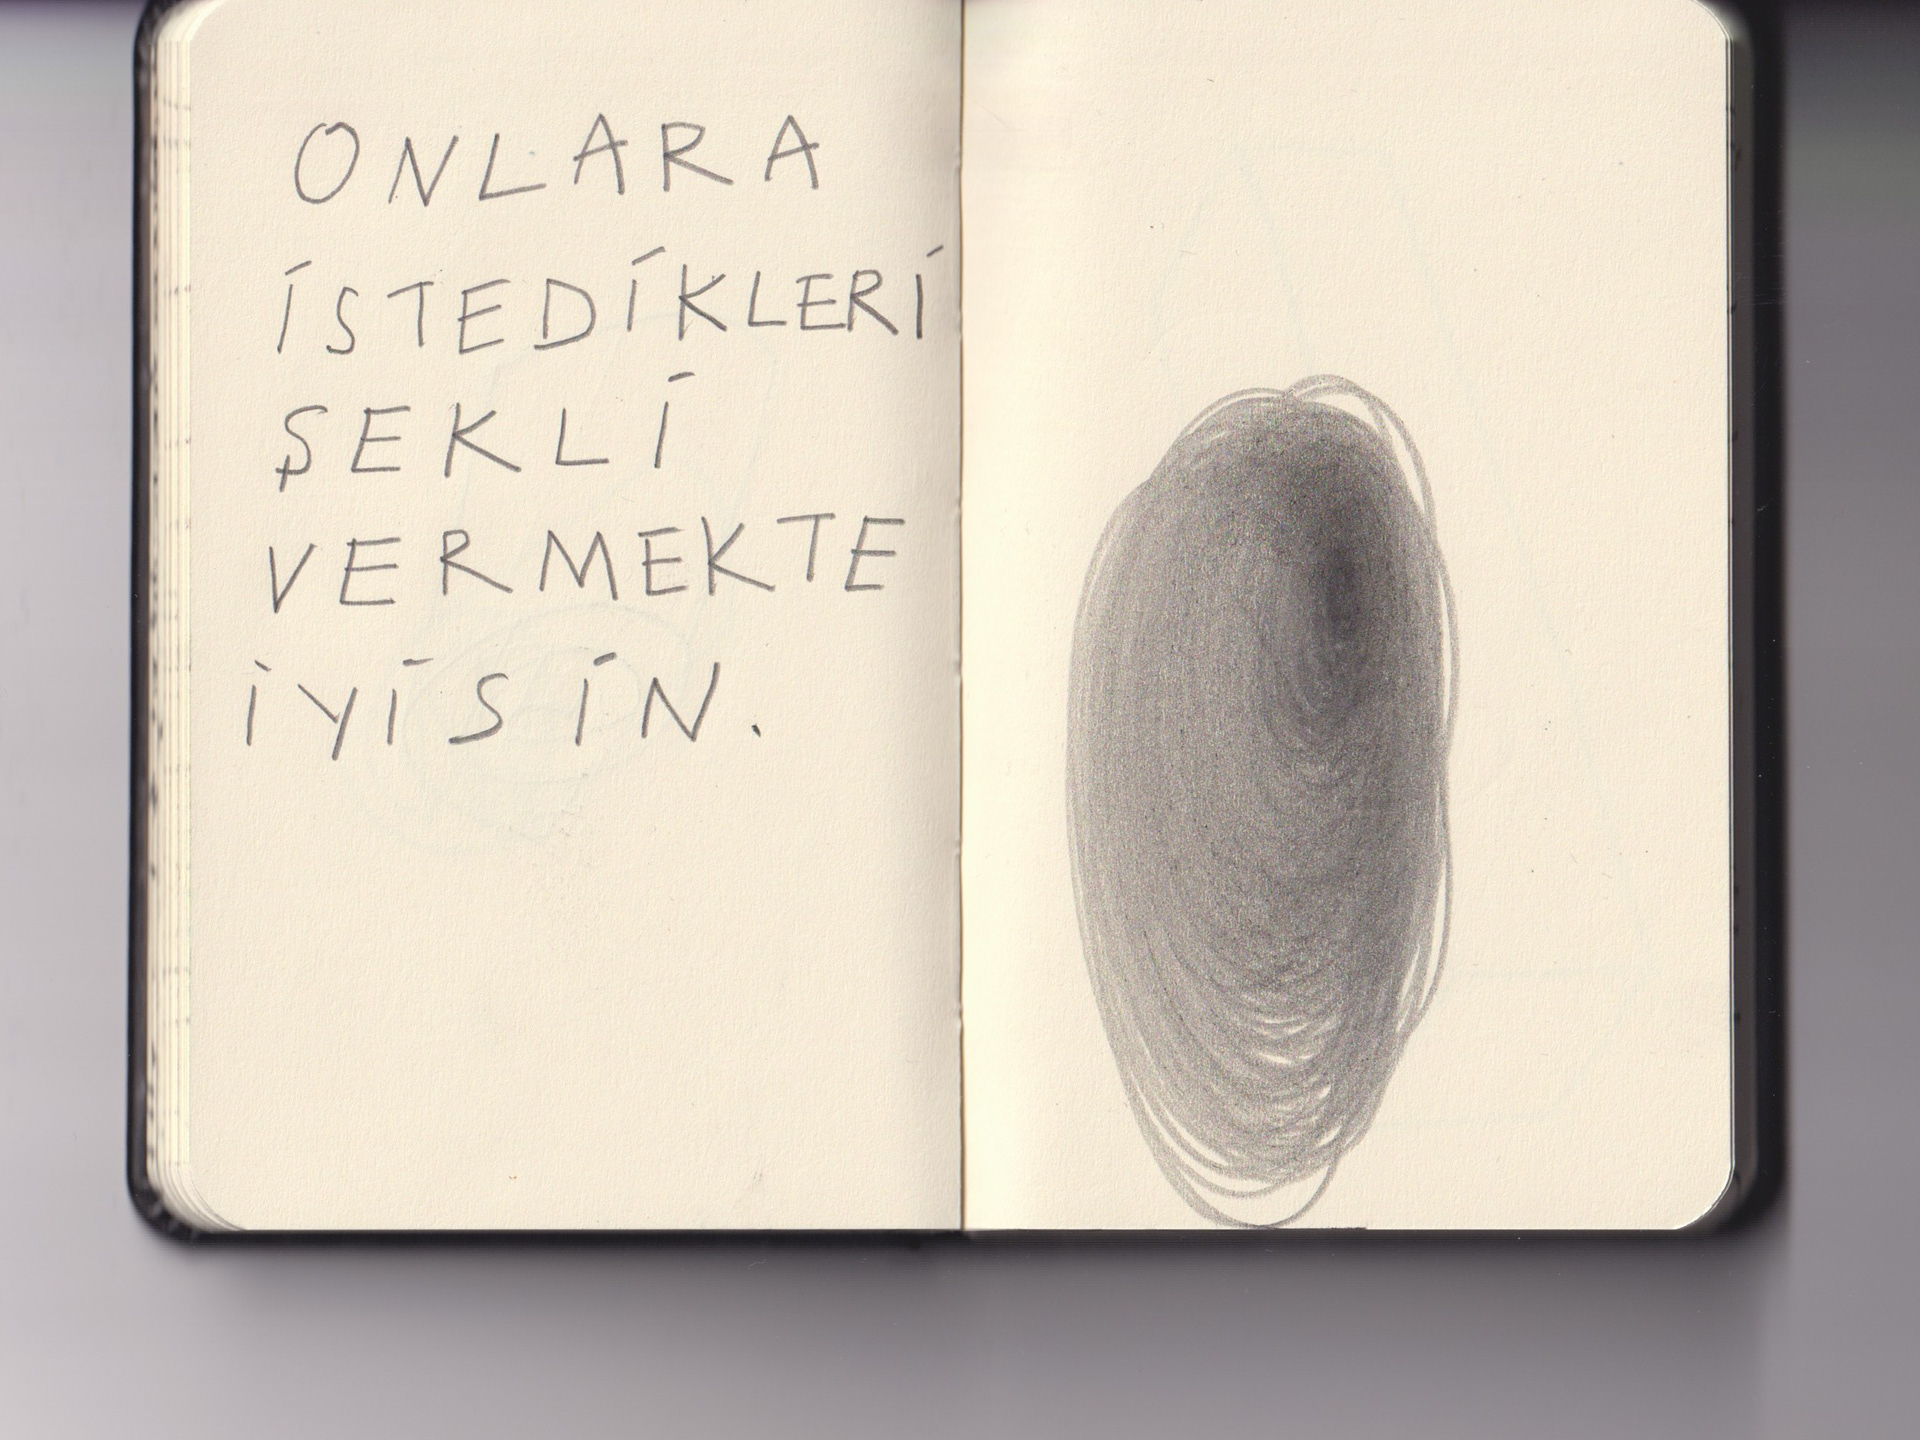 ONLARA
İSTEDİKLERİ
ŞEKLİ
VERMEKTE
İYİSİN.